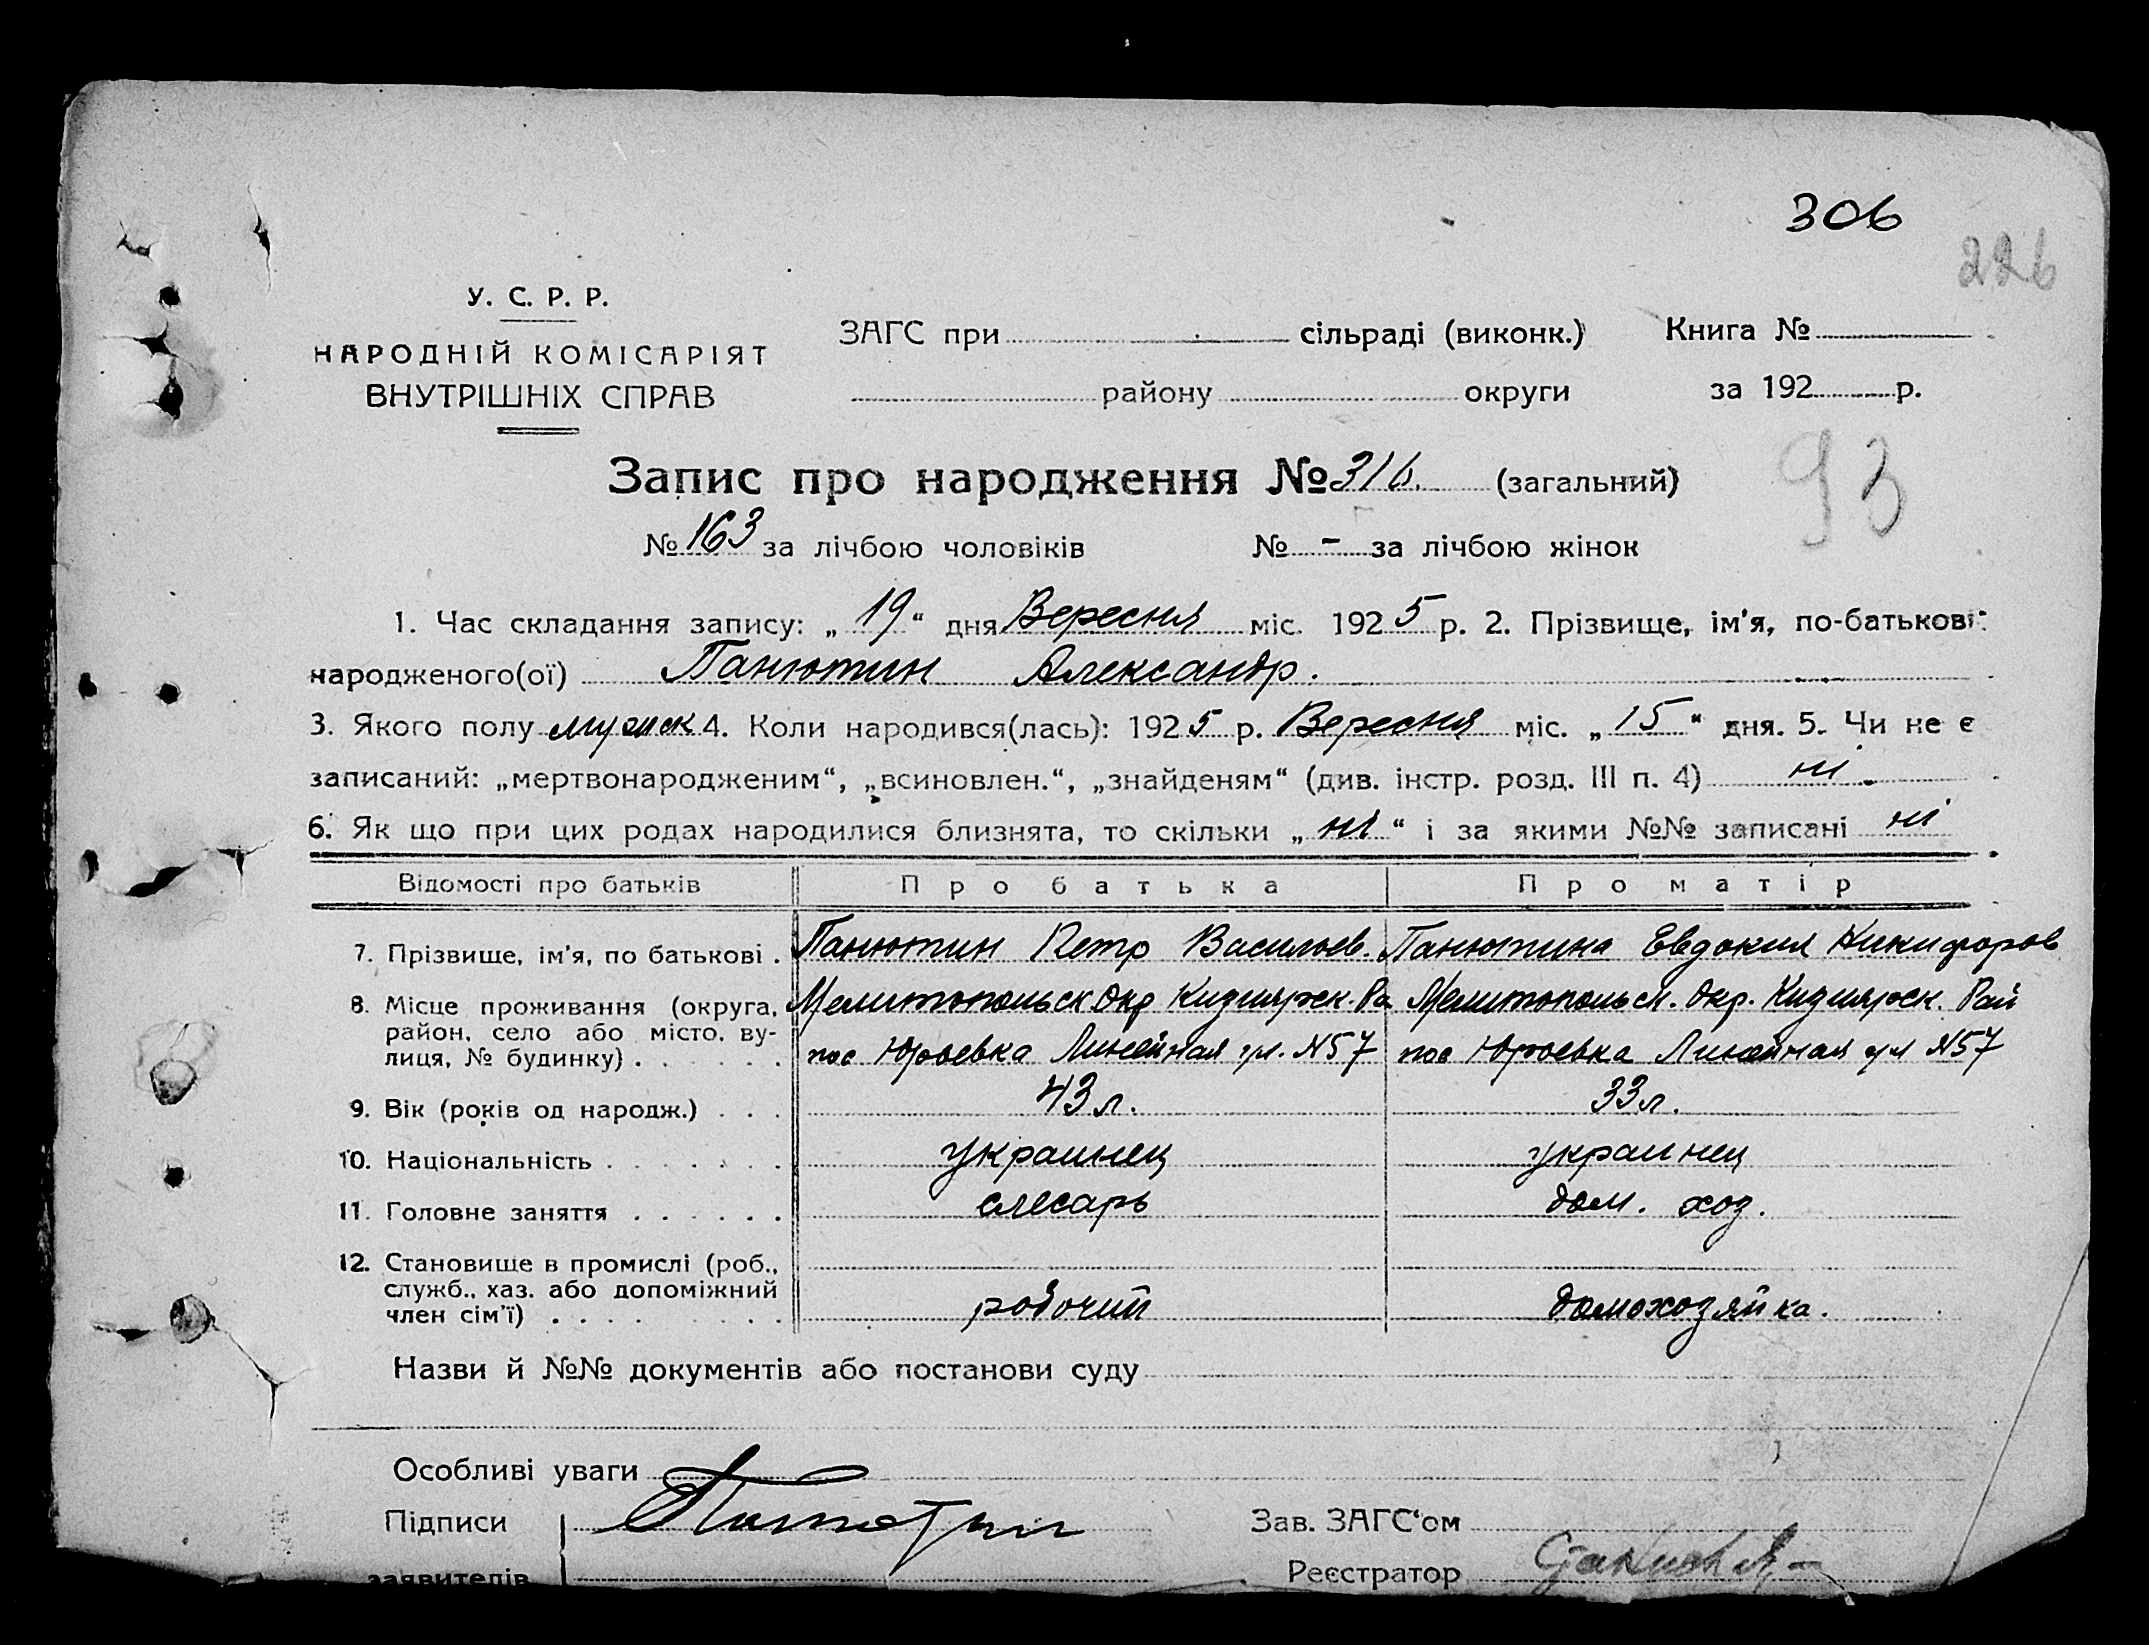 306
226
У. С. Р. Р.
НАРОДНІЙ КОМІСАРІЯТ
ВНУТРІШНІХ СПРАВ
ЗАГС при сільраді (виконк.) Книга №
району округи за 192 р.
93
Запис про народження № 316. (загальний)
№ 163 за лічбою чоловіків № - за лічбою жінок
1. Час складання запису: „19“ дня Вересня міс. 1925 р. 2. Прізвище, ім'я, по-батькові
народженого(ої) Панютин Александр.
3. Якого полу мужск 4. Коли народився(лась): 1925 р. Вересня міс. „15“ дня. 5. Чи не є
записаний: „мертвонародженим“, „всиновлен.“, „знайденям“ (див. інстр. розд. III п. 4) ні.
6. Як що при цих родах народилися близнята, то скільки „ні“ і за якими №№ записані ні
Відомості про батьків Про батька Про матір
7. Прізвище, ім'я, по батькові . Панютин Петр Васильев. Панютина Евдокия Никифоров
8. Місце проживання (округа, Мелитопольск Окр Кизиярск. Ра Мелитопольск. Окр. Кизиярск. Рай
район, село або місто, ву-
лиця, № будинку) . . . . . пос Юрьевка Линейная ул. №57 пос Юрьевка Линейная ул №57
9. Вік (років од народж.) . . . 43 л. 33 л.
10. Національність . . . . . . . украинец украинец
11. Головне заняття . . . . . . слесарь дом. хоз.
12. Становище в промислі (роб.,
служб., хаз. або допоміжний
член сім'ї) . . . . . . . . рабочий домохозяйка.
Назви й №№ документів або постанови суду
Особливі уваги
Підписи Зав. ЗАГС'ом
заявителів Реєстратор